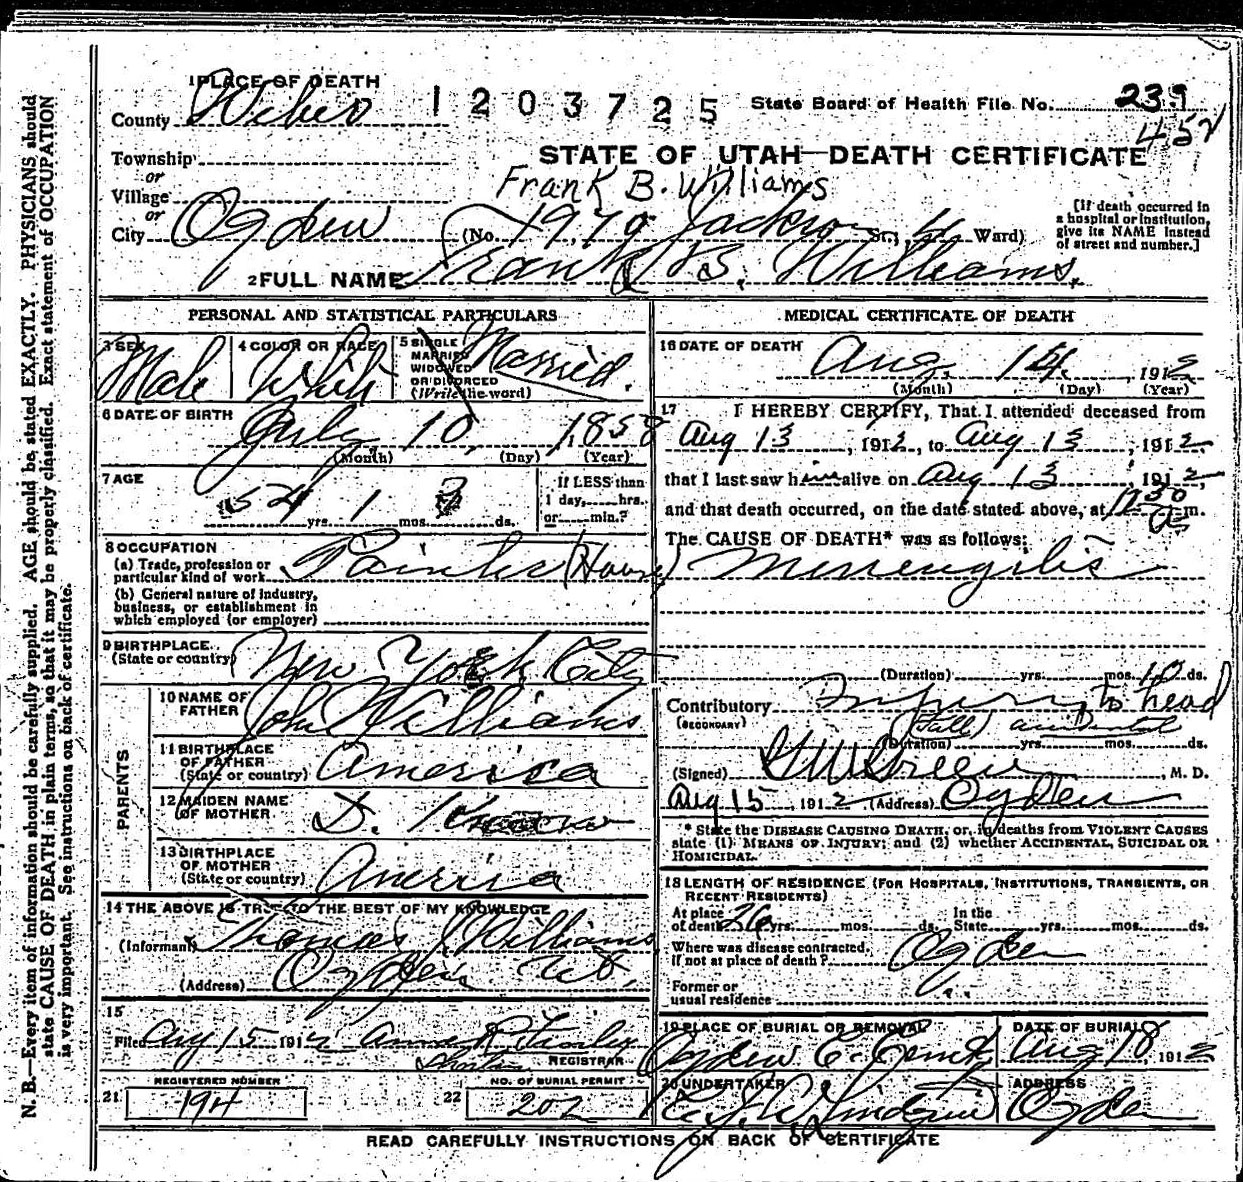 1 PLACE OF DEATH
County Weber
1203725
State Board of Health File No. 239
452
Township
or
Village
or
City Ogden
STATE OF UTAH—DEATH CERTIFICATE
Frank B. Williams
(No. 1979 Jackson St., 4 Ward)
[If death occurred in a hospital or institution, give its NAME instead of street and number.]
2 FULL NAME Frank B. Williams.
PERSONAL AND STATISTICAL PARTICULARS
3 SEX Male
4 COLOR OR RACE White
5 SINGLE MARRIED WIDOWED OR DIVORCED (Write the word) Married.
6 DATE OF BIRTH July 10, 1858
(Month) (Day) (Year)
7 AGE 54 yrs. 1 mos. ds.
If LESS than 1 day, hrs. or min.?
8 OCCUPATION
(a) Trade, profession or particular kind of work Painter (House)
(b) General nature of industry, business, or establishment in which employed (or employer)
9 BIRTHPLACE
(State or country) New York City
PARENTS
10 NAME OF FATHER John Williams
11 BIRTHPLACE OF FATHER (State or country) America
12 MAIDEN NAME OF MOTHER D.
13 BIRTHPLACE OF MOTHER (State or country) America
14 THE ABOVE IS TRUE TO THE BEST OF MY KNOWLEDGE
(Informant) Thomas J Williams
(Address) Ogden Ut.
15
Filed Aug 15 1912 Anna
REGISTRAR
REGISTERED NUMBER
21 194
NO. OF BURIAL PERMIT
22 202
MEDICAL CERTIFICATE OF DEATH
16 DATE OF DEATH Aug. 14, 1912
(Month) (Day) (Year)
17 I HEREBY CERTIFY, That I attended deceased from
Aug 13, 1912, to Aug 13, 1912,
that I last saw him alive on Aug 13, 1912,
and that death occurred, on the date stated above, at 12 30 m.
The CAUSE OF DEATH* was as follows:
Menengitis
(Duration) yrs. mos. 10 ds.
Contributory Injury to head
(SECONDARY) (fall) accidental
(Duration) yrs. mos. ds.
(Signed) Green, M. D.
Aug 15, 1912 (Address) Ogden
* State the DISEASE CAUSING DEATH, or, in deaths from VIOLENT CAUSES state (1) MEANS OF INJURY; and (2) whether ACCIDENTAL, SUICIDAL OR HOMICIDAL.
18 LENGTH OF RESIDENCE (FOR HOSPITALS, INSTITUTIONS, TRANSIENTS, OR RECENT RESIDENTS)
At place of death 26 yrs. mos. ds. In the State yrs. mos. ds.
Where was disease contracted, if not at place of death? Ogden
Former or usual residence
19 PLACE OF BURIAL OR REMOVAL Ogden C. Cemt
DATE OF BURIAL Aug 18 1912
20 UNDERTAKER Lindquist
ADDRESS Ogden
READ CAREFULLY INSTRUCTIONS ON BACK OF CERTIFICATE
N. B.—Every item of information should be carefully supplied. AGE should be stated EXACTLY. PHYSICIANS should
state CAUSE OF DEATH in plain terms, so that it may be properly classified. Exact statement of OCCUPATION
is very important. See instructions on back of certificate.